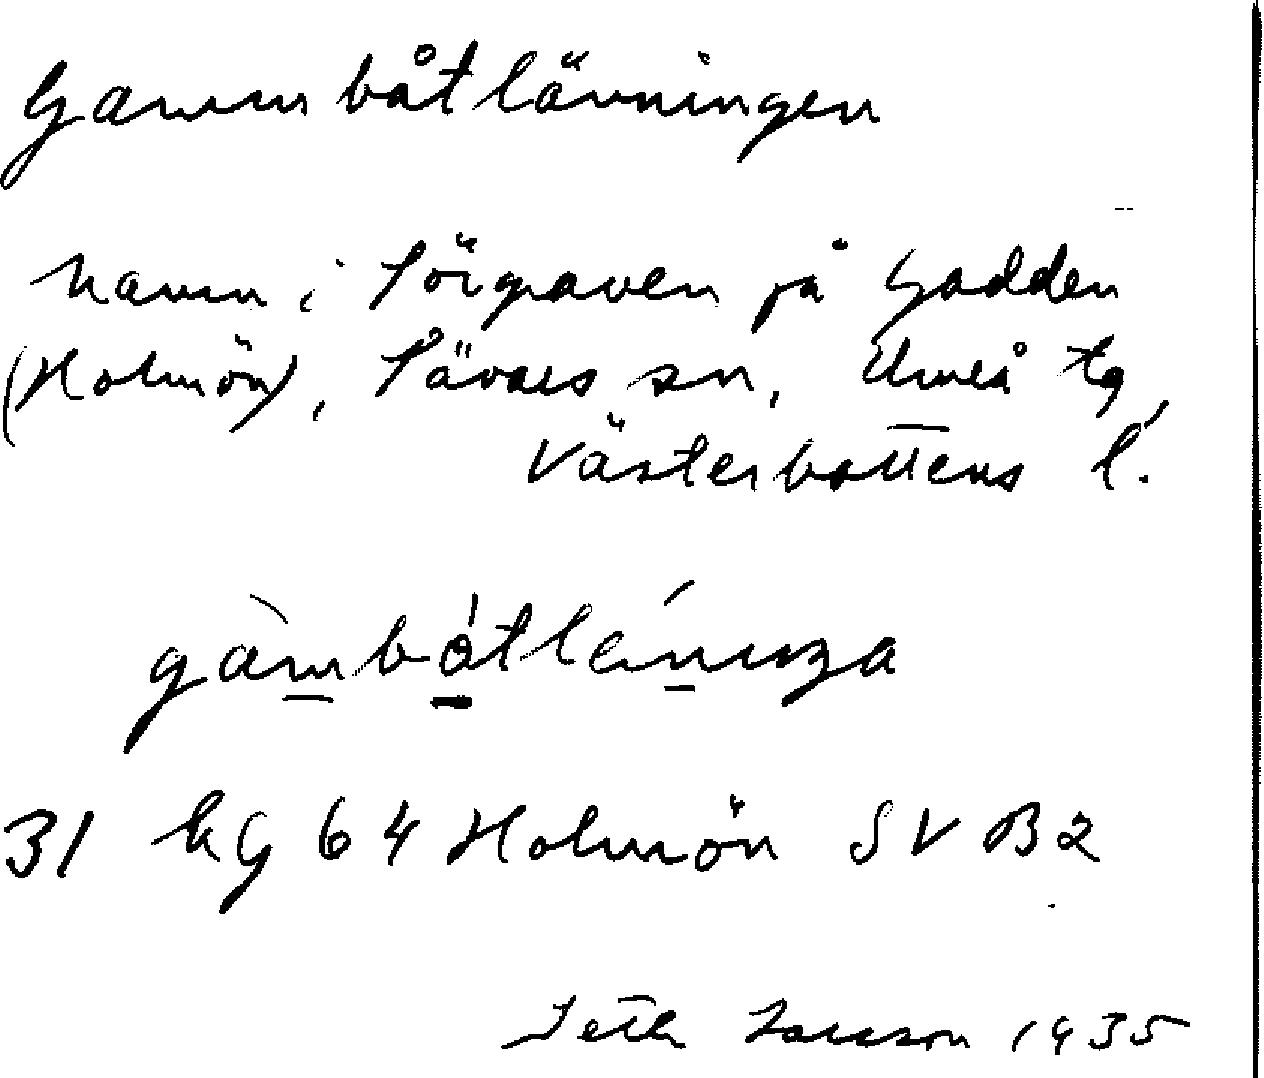 Gammbåtlänningen
Namn i Sörgraven på Gadden
(Holmön), Sävars sn, Umeå tg,
Västerbottens l.
gàmbåtlánniŋa
31 kG 64 Holmön SV B2
Seth Larsson 1935